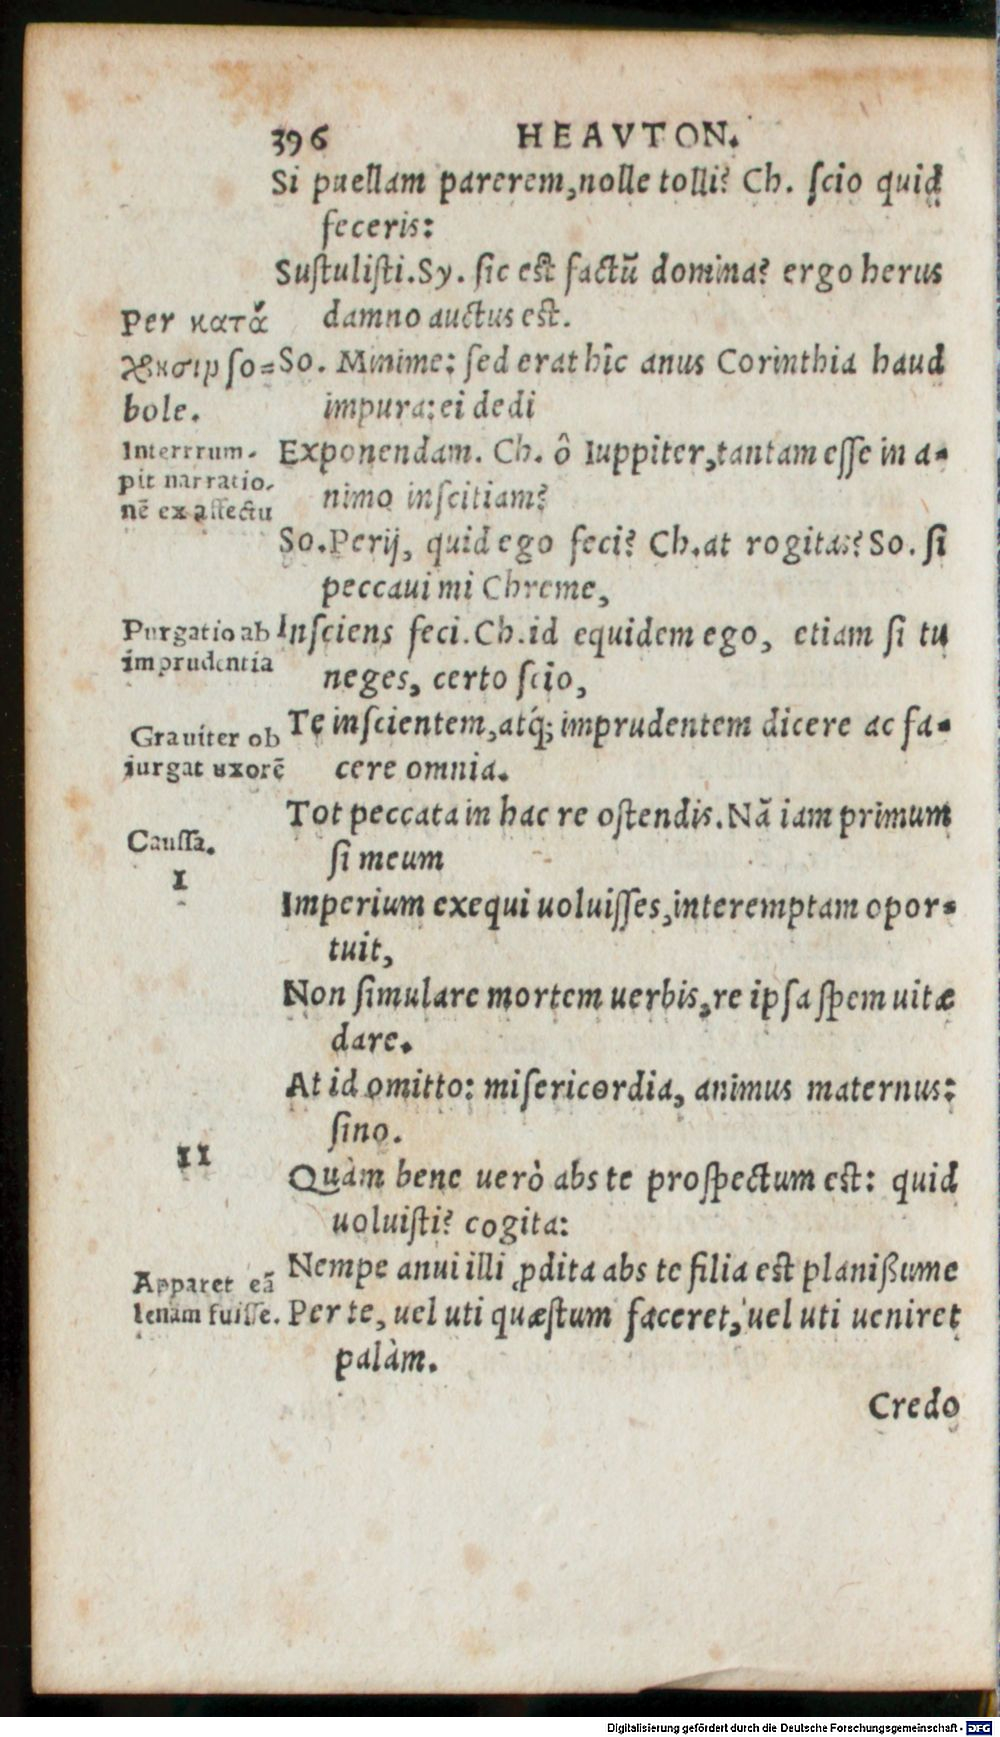 396 HEAVTON.
Si puellam parerem, nolle tolli? Ch. ſcio quid
feceris:
Suſtuliſti. Sy. ſic eſt factū domina? ergo herus
damno auctus eſt.
So. Minime: ſed erat hîc anus Corinthia haud
impura: ei dedi
Exponendam. Ch. ô Iuppiter, tantam eſſe in a-
nimo inſcitiam?
So. Perij, quid ego feci? Ch. at rogitas? So. ſi
peccaui mi Chreme,
Inſciens feci. Ch. id equidem ego, etiam ſi tu
neges, certo ſcio,
Te inſcientem, atq́; imprudentem dicere ac fa-
cere omnia.
Tot peccata in hac re oſtendis. Nā iam primum
ſi meum
Imperium exequi uoluiſſes, interemptam opor-
tuit,
Non ſimulare mortem uerbis, re ipſa ſpem uitæ
dare.
At id omitto: miſericordia, animus maternus:
ſino.
Quàm bene uerò abs te proſpectum eſt: quid
uoluiſti? cogita:
Nempe anui illi ꝓdita abs te filia eſt planißume
Per te, uel uti quæſtum faceret, uel uti ueniret
palàm.
Credo
Per κατά
χρησιν ſo-
bole.
Interrrum-
pit narratio-
nē ex affectu
Purgatio ab
imprudentia
Grauiter ob
iurgat uxorē
Cauſſa.
I
II
Apparet eā
lenam fuiſſe.
Digitalisierung gefördert durch die Deutsche Forschungsgemeinschaft - DFG